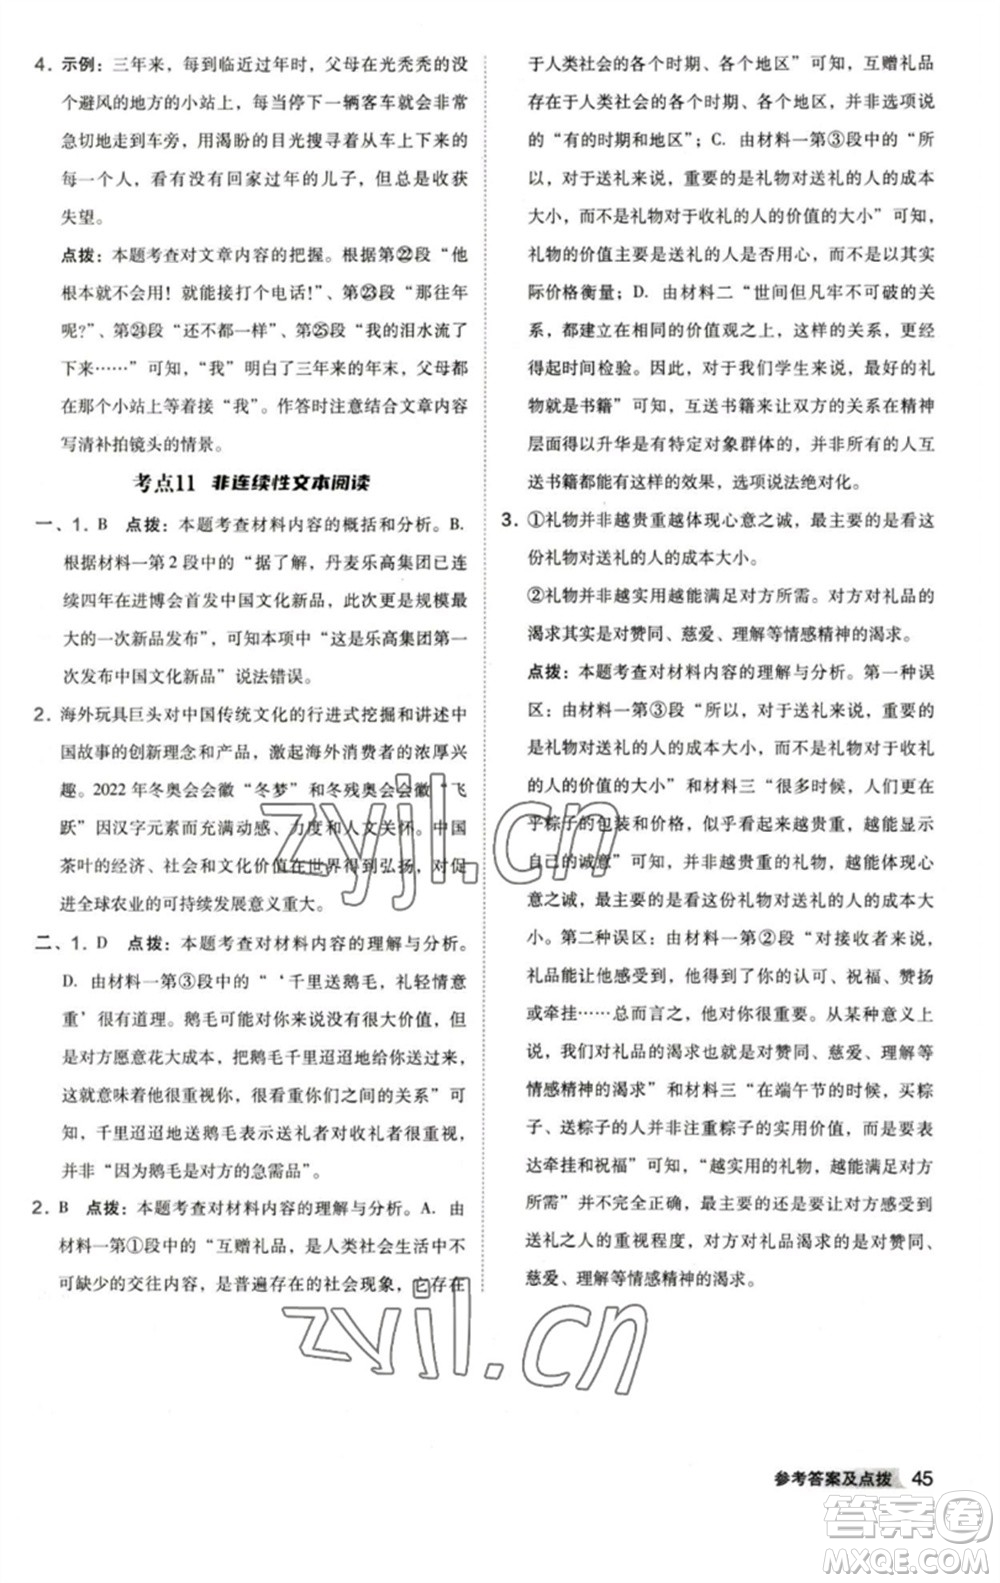 4. 示例：三年来，每到临近过年时，父母在光秃秃的没
个避风的地方的小站上，每当停下一辆客车就会非常
急切地走到车旁，用渴盼的目光搜寻从车上下来的
每一个人，看有没有回家过年的儿子，但总是收获
失望。
点拨：本题考查对文章内容的把握。根据第㉒段“他
根本就不会用！就能接打个电话！”、第㉓段“那往年
呢？”、第㉔段“还不都一样”、第㉕段“我的泪水流了
下来……”可知，“我”明白了三年来的年末，父母都
在那个小站上等着接“我”。作答时注意结合文章内容
写清补拍镜头的情景。
考点11 非连续性文本阅读
一、1. B 点拨：本题考查材料内容的概括和分析。B.
根据材料一第2段中的“据了解，丹麦乐高集团已连
续四年在进博会首发中国文化新品，此次更是规模最
大的一次新品发布”，可知本项中“这是乐高集团第一
次发布中国文化新品”说法错误。
2. 海外玩具巨头对中国传统文化的行进式挖掘和讲述中
国故事的创新理念和产品，激起海外消费者的浓厚兴
趣。2022年冬奥会会徽“冬梦”和冬残奥会会徽“飞
跃”因汉字元素而充满动感、力度和人文关怀。中国
茶叶的经济、社会和文化价值在世界得到弘扬，对促
进全球农业的可持续发展意义重大。
二、1. D 点拨：本题考查对材料内容的理解与分析。
D. 由材料一第③段中的“‘千里送鹅毛，礼轻情意
重’很有道理。鹅毛可能对你来说没有很大价值，但
是对方愿意花大成本，把鹅毛千里迢迢地给你送来，
这就意味着他很重视你，很重视你们之间的关系”可
知，千里迢迢地送鹅毛表示送礼者对收礼者很重视，
并非“因为鹅毛是对方的急需品”。
2. B 点拨：本题考查对材料内容的理解与分析。A. 由
材料一第①段中的“互赠礼品，是人类社会生活中不
可缺少的交往内容，是普遍存在的社会现象，它存在
于人类社会的各个时期、各个地区”可知，互赠礼品
存在于人类社会的各个时期、各个地区，并非选项说
的“有的时期和地区”；C. 由材料一第③段中的“所
以，对于送礼来说，重要的是礼物对送礼的人的成本
大小，而不是礼物对于收礼的人的价值的大小”可知，
礼物的价值主要是送礼的人是否用心，而不是以其实
际价格衡量；D. 由材料二“世间但凡牢不可破的关
系，都建立在相同的价值观之上，这样的关系，才经
得起时间检验。因此，对于我们学生来说，最好的礼
物就是书籍”可知，互送书籍来让双方的关系在精神
层面得以升华是有特定对象群体的，并非所有的人互
送书籍都能有这样的效果，选项说法绝对化。
3. ①礼物并非越贵重越体现心意之诚，最主要的是看这
份礼物对送礼的人的成本大小。
②礼物并非越实用越能满足对方所需，对方对礼品的
渴求其实是对赞同、慈爱、理解等情感精神的渴求。
点拨：本题考查对材料内容的理解与分析。第一种误
区：由材料一第③段“所以，对于送礼来说，重要的
是礼物对送礼的人的成本大小，而不是礼物对于收礼
的人的价值的大小”和材料三“很多时候，人们更在
乎粽子的包装和价格，似乎看起来越贵重，越能显示
自己的诚意”可知，并非越贵重的礼物，越能体现心
意之诚，最主要的是看这份礼物对送礼的人的成本大
小。第二种误区：由材料一第②段“对接收者来说，
礼品能让他感受到，他得到了你的认可、祝福、赞扬
或牵挂……总而言之，他得到了你的重视。从某种意义上
说，我们对礼品的渴求就是对赞同、慈爱、理解等
情感精神的渴求”和材料三“在端午节的时候，买粽
子、送粽子的人并非注重粽子的实用价值，而是要表
达牵挂和祝福”可知，“越实用的礼物，越能满足对方
所需”并不完全正确，最主要的还是要让对方感受到
送礼之人的重视程度，对方对礼品渴求的是对赞同、
慈爱、理解等情感精神的渴求。
zyjl.cn
zyjl.cn
参考答案及点拨 45
答案圈
MXQE.COM